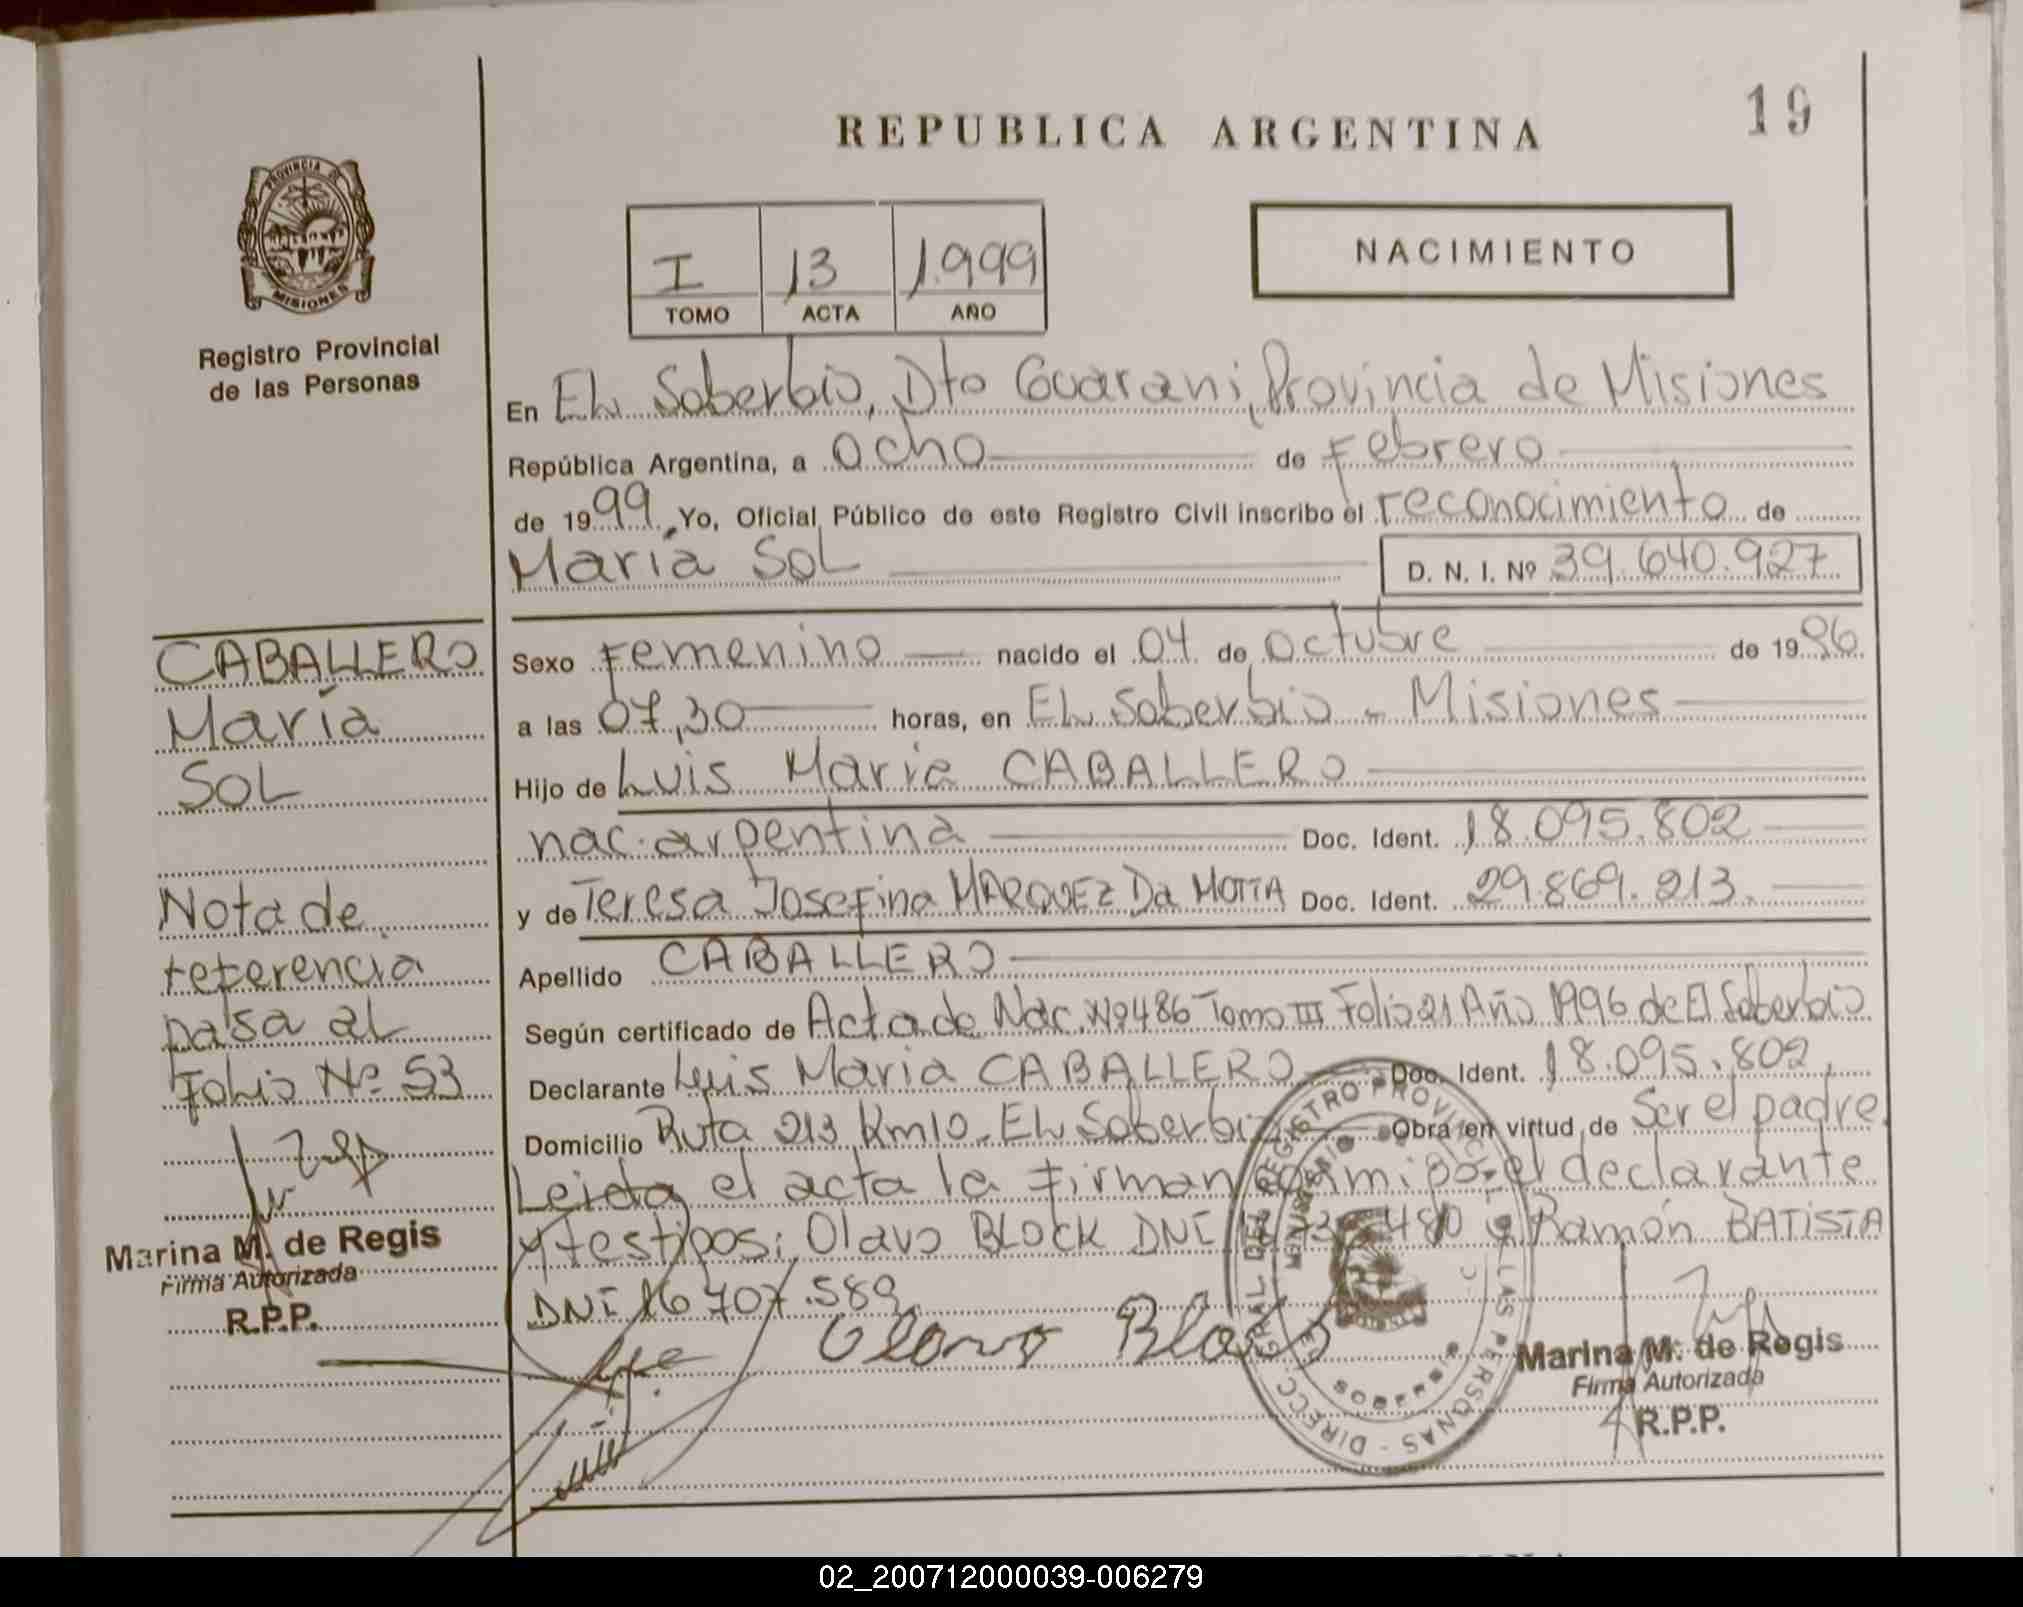 19
REPUBLICA ARGENTINA
PROVINCIA DE
MISIONES
Registro Provincial
de las Personas
I 13 1.999
TOMO ACTA AÑO
NACIMIENTO
En EL Soberbio, Dto Guarani, Provincia de Misiones
República Argentina, a ocho de Febrero
de 1999, Yo, Oficial Público de este Registro Civil inscribo el reconocimiento de
María SOL D. N. I. Nº 39.640.927
Sexo Femenino nacido el 04 de octubre de 1996
a las 07,30 horas, en EL Soberbio - Misiones
Hijo de Luis María CABALLERO
nac. argentina Doc. Ident. 18.095.802
y de Teresa Josefina MARQUEZ Da MOTTA Doc. Ident. 29.869.213.
Apellido CABALLERO
Según certificado de Acta de Nac. Nº 486 Tomo III Folio 21 Año 1996 de El Soberbio
Declarante Luis María CABALLERO Doc. Ident. 18.095.802,
Domicilio Ruta 213 Km 10 - EL Soberbio Obra en virtud de Ser el padre.
Leida el acta la firman conmigo, el declarante
y testigos: Olavo BLOCK DNI 480 y Ramón BATISTA
DNI 16.707.589
Olavo Block
Marina M. de Regis
Firma Autorizada
R.P.P.
DIRECC GRAL DEL REGISTRO PROVINCIAL DE LAS PERSONAS
MINISTERIO
EL SOBERBIO
CABALLERO
María
SOL
Nota de
referencia
pasa al
Folio Nº 53
Marina M. de Regis
Firma Autorizada
R.P.P.
02_200712000039-006279